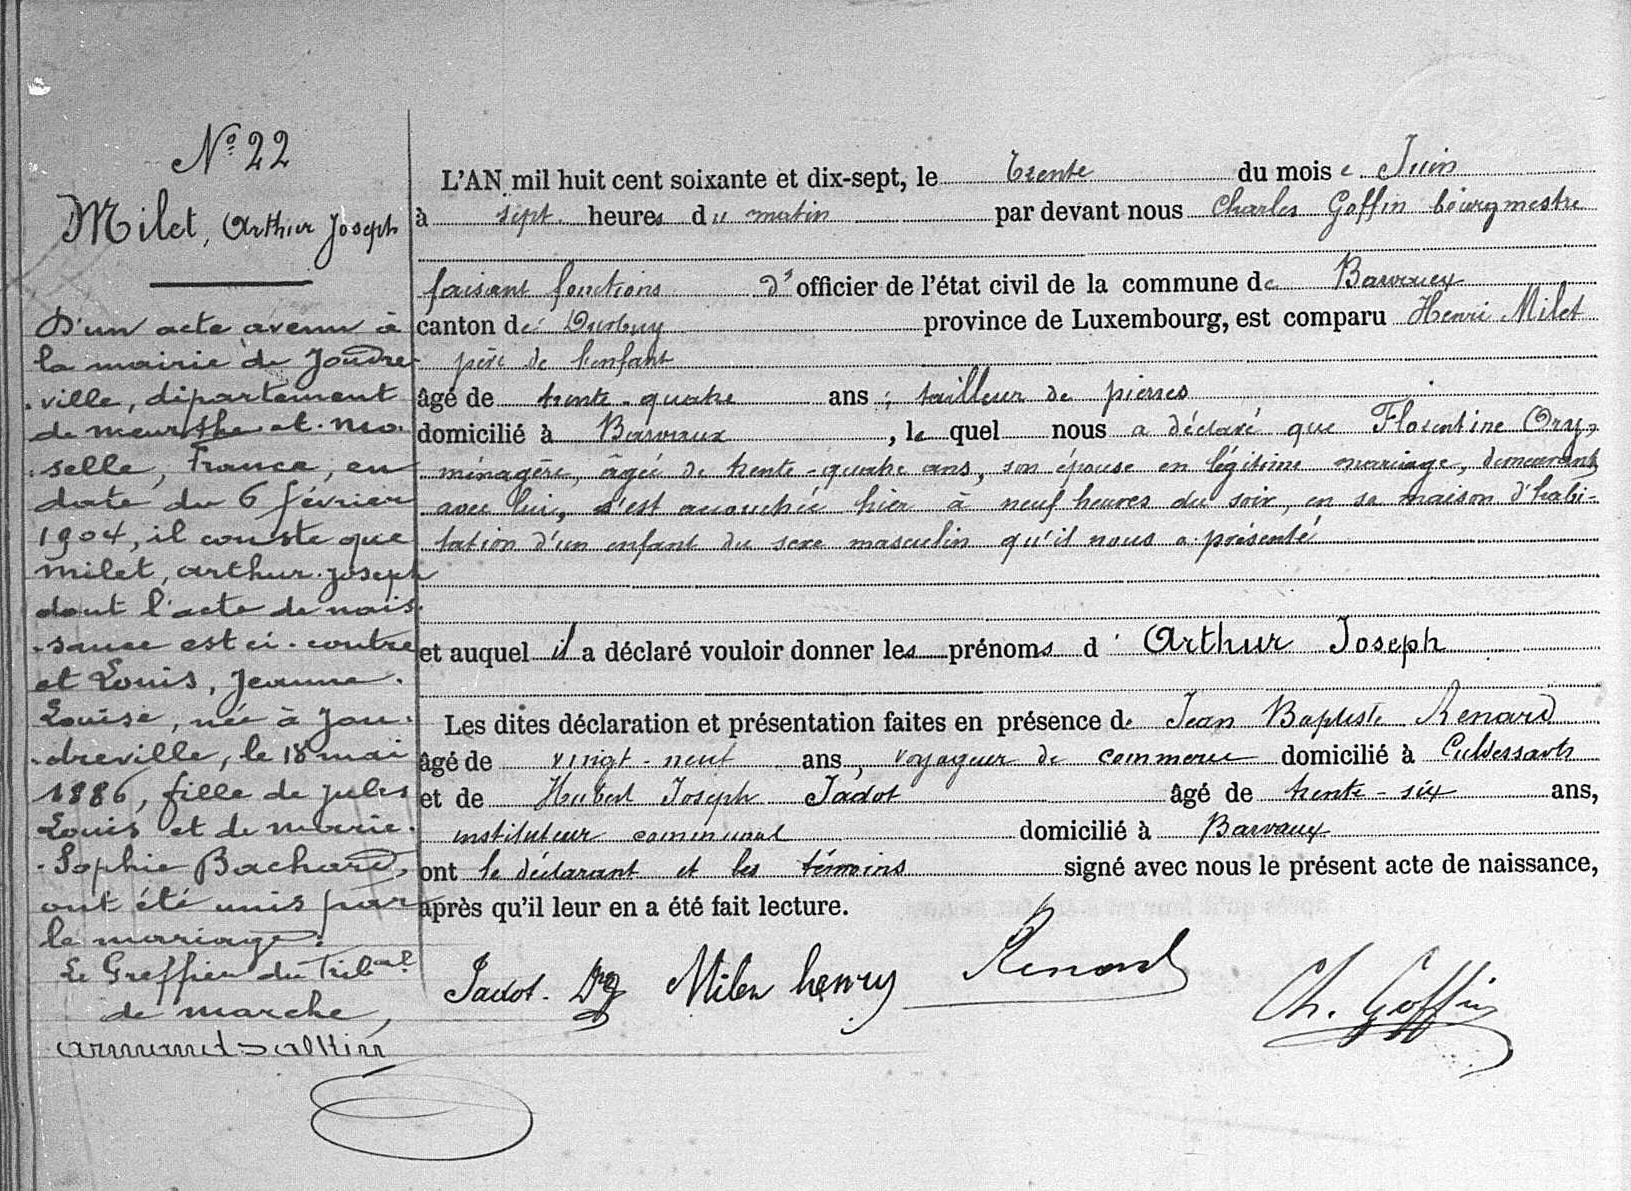 N° 22
Milet, Arthur Joseph
D'un acte avenu à
la mairie de Joudre-
ville, département
de meurthe et mo-
selle, France, en
date du 6 février
1904, il conste que
milet, arthur joseph
dont l'acte de nais-
sance est ci-contre
et Louis, Jeanne
Louise, née à Jou-
dreville, le 18 mai
1886, fille de jules
Louis et de marie-
Sophie Bachard,
ont été unis par
le mariage.
Le Greffier du Tribal
de marche,
L'AN mil huit cent soixante et dix-sept, le trente du mois e Juin
à sept heures du matin par devant nous Charles Goffin bourgmestre
faisant fonctions d'officier de l'état civil de la commune de Barvaux
canton de Durbuy province de Luxembourg, est comparu Henri Milet
père de l'enfant
âgé de trente-quatre ans, tailleur de pierres
domicilié à Barvaux, le quel nous a déclaré que Florentine Ory,
ménagère, âgée de trente-quatre ans, son épouse en légitime mariage, demeurant
avec lui, s'est accouchée hier à neuf heures du soir, en sa maison d'habi-
tation d'un enfant du sexe masculin qu'il nous a présenté
et auquel il a déclaré vouloir donner les prénoms d'Arthur Joseph
Les dites déclaration et présentation faites en présence de Jean Baptiste Renard
âgé de vingt-neuf ans, voyageur de commerce domicilié à Culdessarts
et de Hubert Joseph Jadot âgé de trente-six ans,
instituteur communal domicilié à Barvaux
ont le déclarant et les témoins signé avec nous le présent acte de naissance,
après qu'il leur en a été fait lecture.
Jadot. Milet henry Renard Ch. Goffin